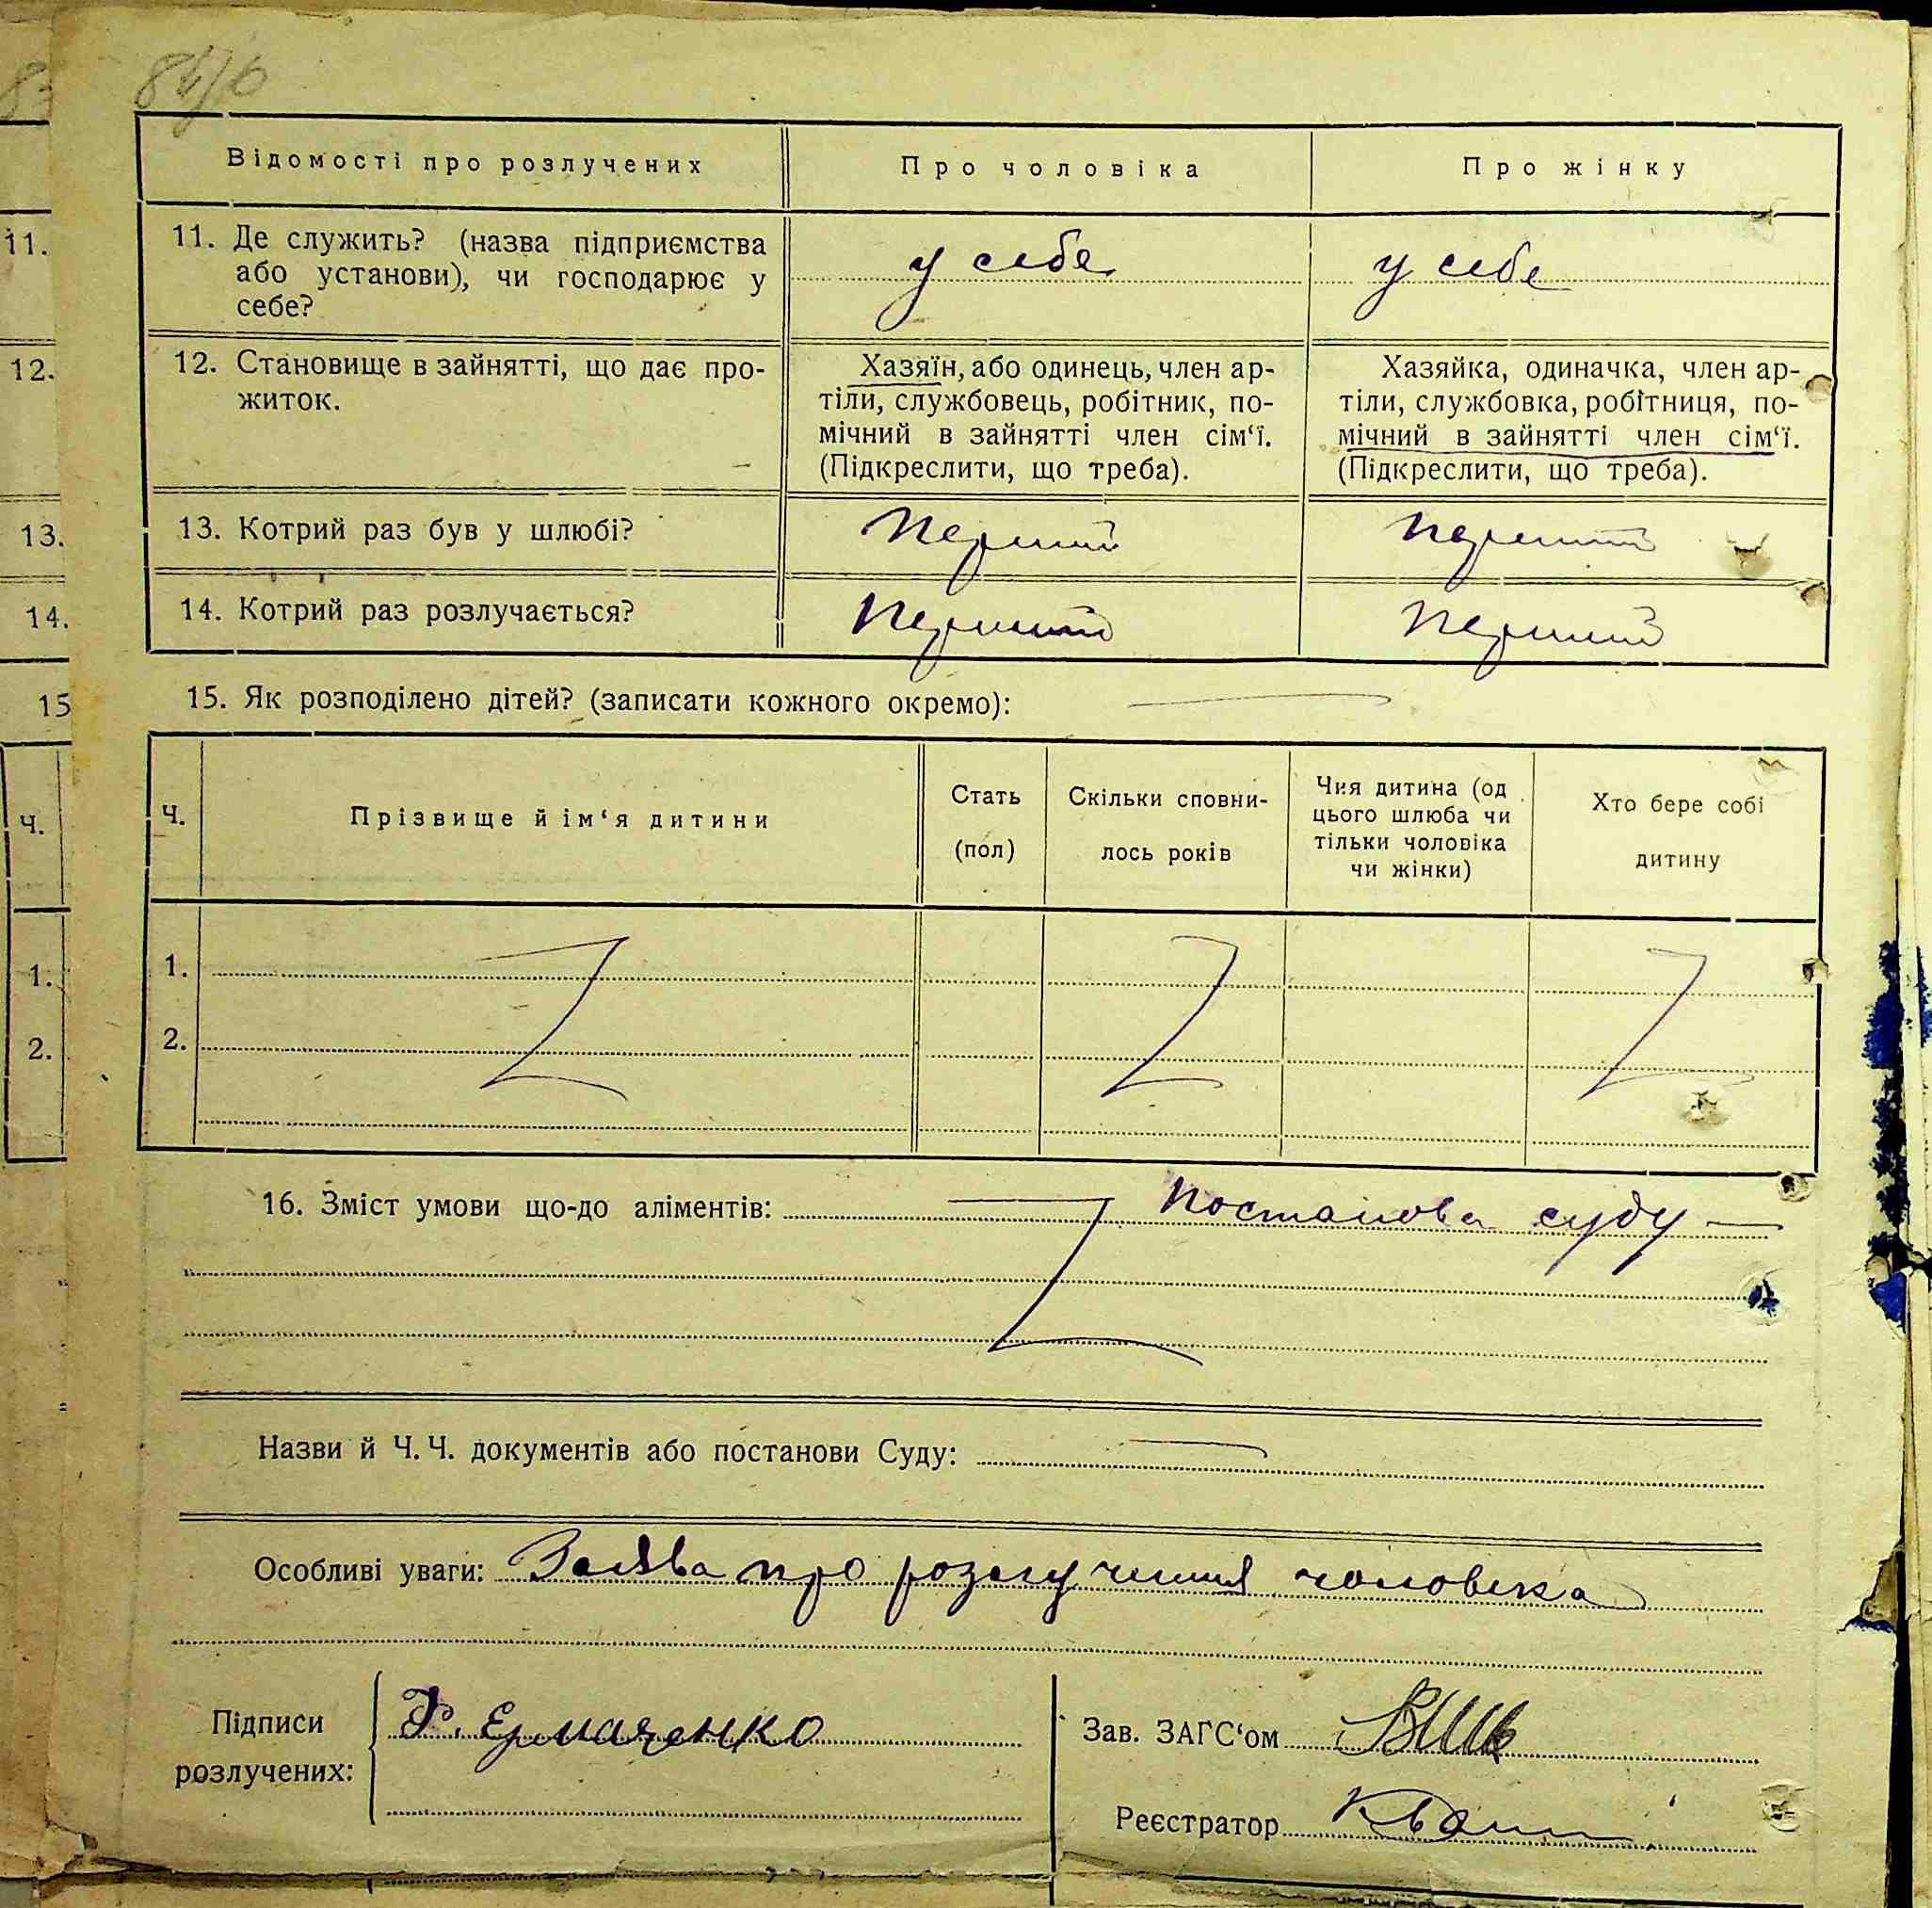 Відомості про розлучених
Про чоловіка
Про жінку
11. Де служить? (назва підприємства
або установи), чи господарює у
себе?
у себе
у себе
12. Становище в зайнятті, що дає про-
житок.
Хазяїн, або одинець, член ар-
тіли, службовець, робітник, по-
мічний в зайнятті член сім‘ї.
(Підкреслити, що треба).
Хазяйка, одиначка, член ар-
тіли, службовка, робітниця, по-
мічний в зайнятті член сім‘ї.
(Підкреслити, що треба).
13. Котрий раз був у шлюбі?
Перший
перший
14. Котрий раз розлучається?
Перший
Перший
15. Як розподілено дітей? (записати кожного окремо):
Ч.
Прізвище й ім‘я дитини
Стать
(пол)
Скільки сповни-
лось років
Чия дитина (од
цього шлюба чи
тільки чоловіка
чи жінки)
Хто бере собі
дитину
1.
2.
16. Зміст умови що-до аліментів: Постанова суду
Назви й Ч. Ч. документів або постанови Суду:
Особливі уваги: Заява про розлучення чоловіка
Підписи
розлучених:
Ф. Ермаченко
Зав. ЗАГС‘ом
Реєстратор
11.
12.
13.
14.
15
Ч.
1.
2.